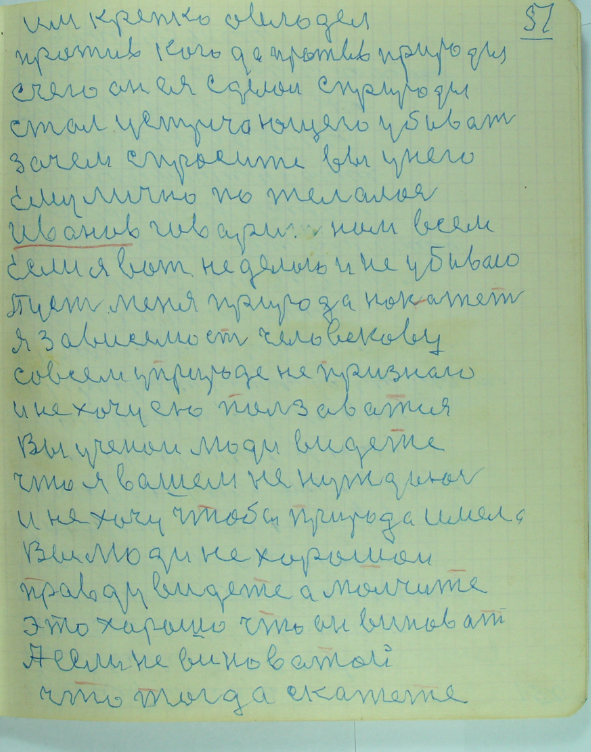 57
им крепко овлодел
против кого да против природы
счего он ея сделои сприроды
стал устричающего убиват
зачем спросите вы унего
ему лично по желалоя
Иванов говарит нам всем
если я вот неделою и не убиваю
пуст меня природа нокажет
я зависемост человекову
совсем уприроде не признаю
и не хочу ею ползаватия
Вы ученои люди видете
что я вашем не нуждаюя
и не хочу чтобы природа имела
Вы люди не хорошои
правду видете а молчите
это хорошо что он виноват
А если не виноватой
что тогда скажете